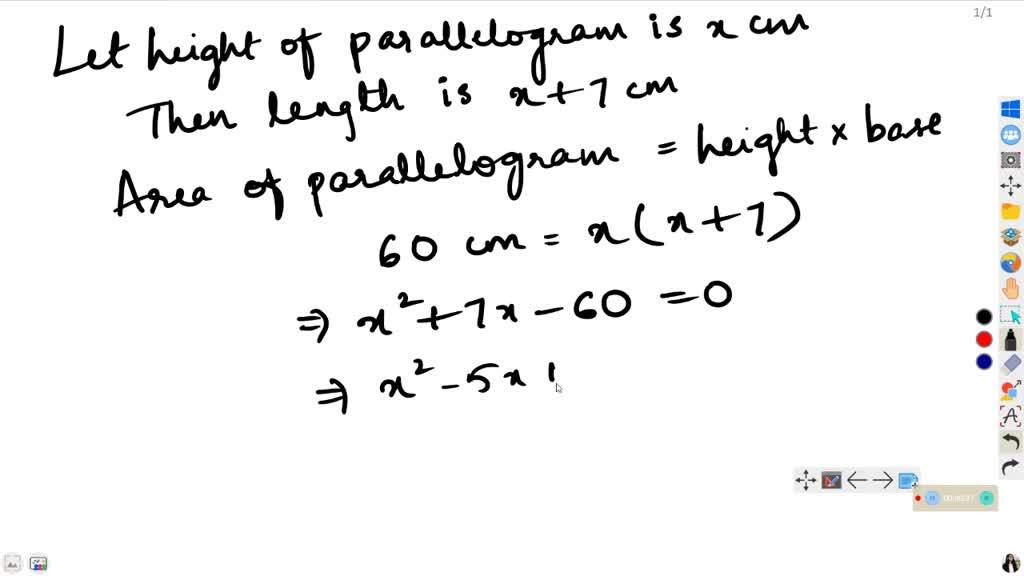 1/1
Let height of parallelogram is x cm
Then length is x+7 cm
Area of parallelogram = height x base
60 cm = x(x+7)
⇒ x²+7x-60=0
⇒ x²-5x